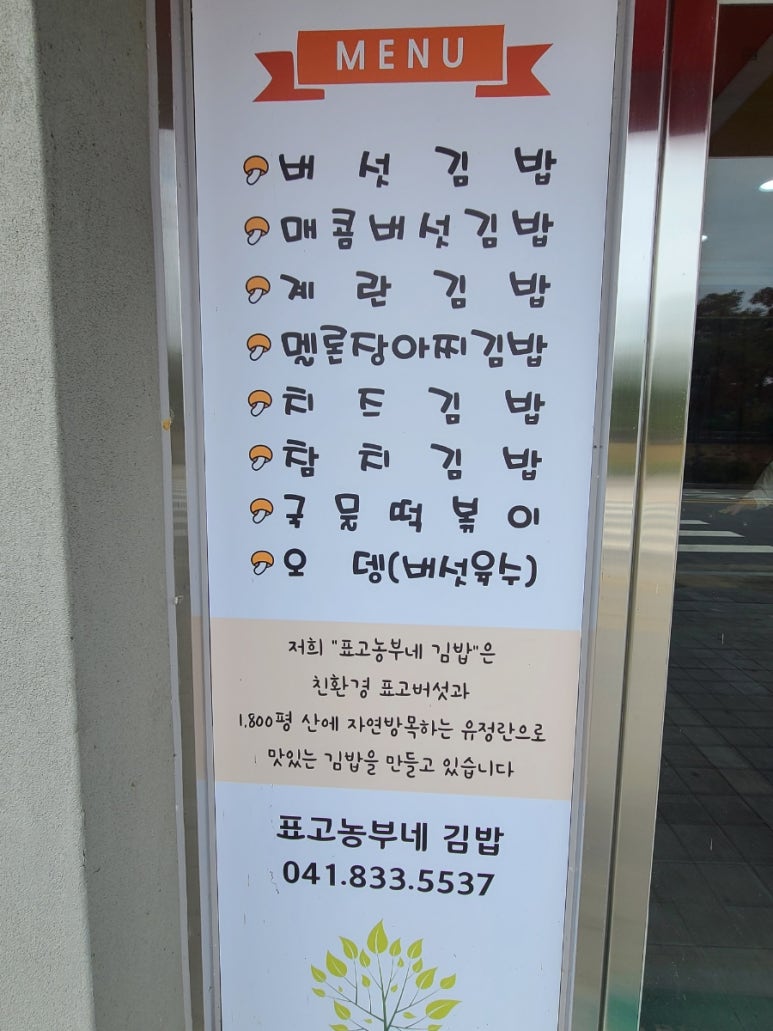 MENU
버섯김밥
매콤버섯김밥
계란김밥
멜론장아찌김밥
치즈김밥
참치김밥
국물떡볶이
오뎅(버섯육수)
저희 "표고농부네 김밥"은
친환경 표고버섯과
1.800평 산에 자연방목하는 유정란으로
맛있는 김밥을 만들고 있습니다
표고농부네 김밥
041.833.5537